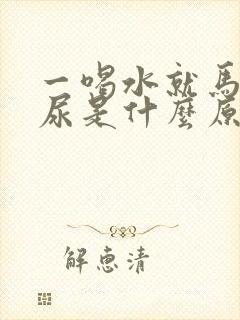 一喝水就馬
尿是什麼原
解惠清